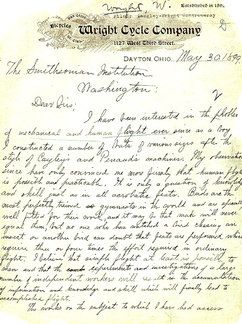 Wright, W.
Established in 1892.
Bicycles
Wright Cycle Company
1127 West Third Street.
DAYTON, OHIO, May 30, 1899
The Smithsonian Institution,
Washington;
Dear Sirs;
I have been interested in the problem
of mechanical and human flight ever since as a boy
I constructed a number of bats of various sizes after the
style of Cayley's and Penaud's machines. My observations
since have only convinced me more firmly that human flight
is possible and practicable. It is only a question of knowledge
and skill just as in all acrobatic feats. Birds are the
most perfectly trained gymnasts in the world and are specially
well fitted for their work, and it may be that man will never
equal them, but no one who has watched a bird chasing an
insect or another bird can doubt that feats are performed which
require three or four times the effort required in ordinary
flight. I believe that simple flight at least is possible to
man and that the experiments and investigations of a large
number of independent workers will result in the accumulation
of information and knowledge and skill which will finally lead to
accomplished flight.
The works on the subject to which I have had access